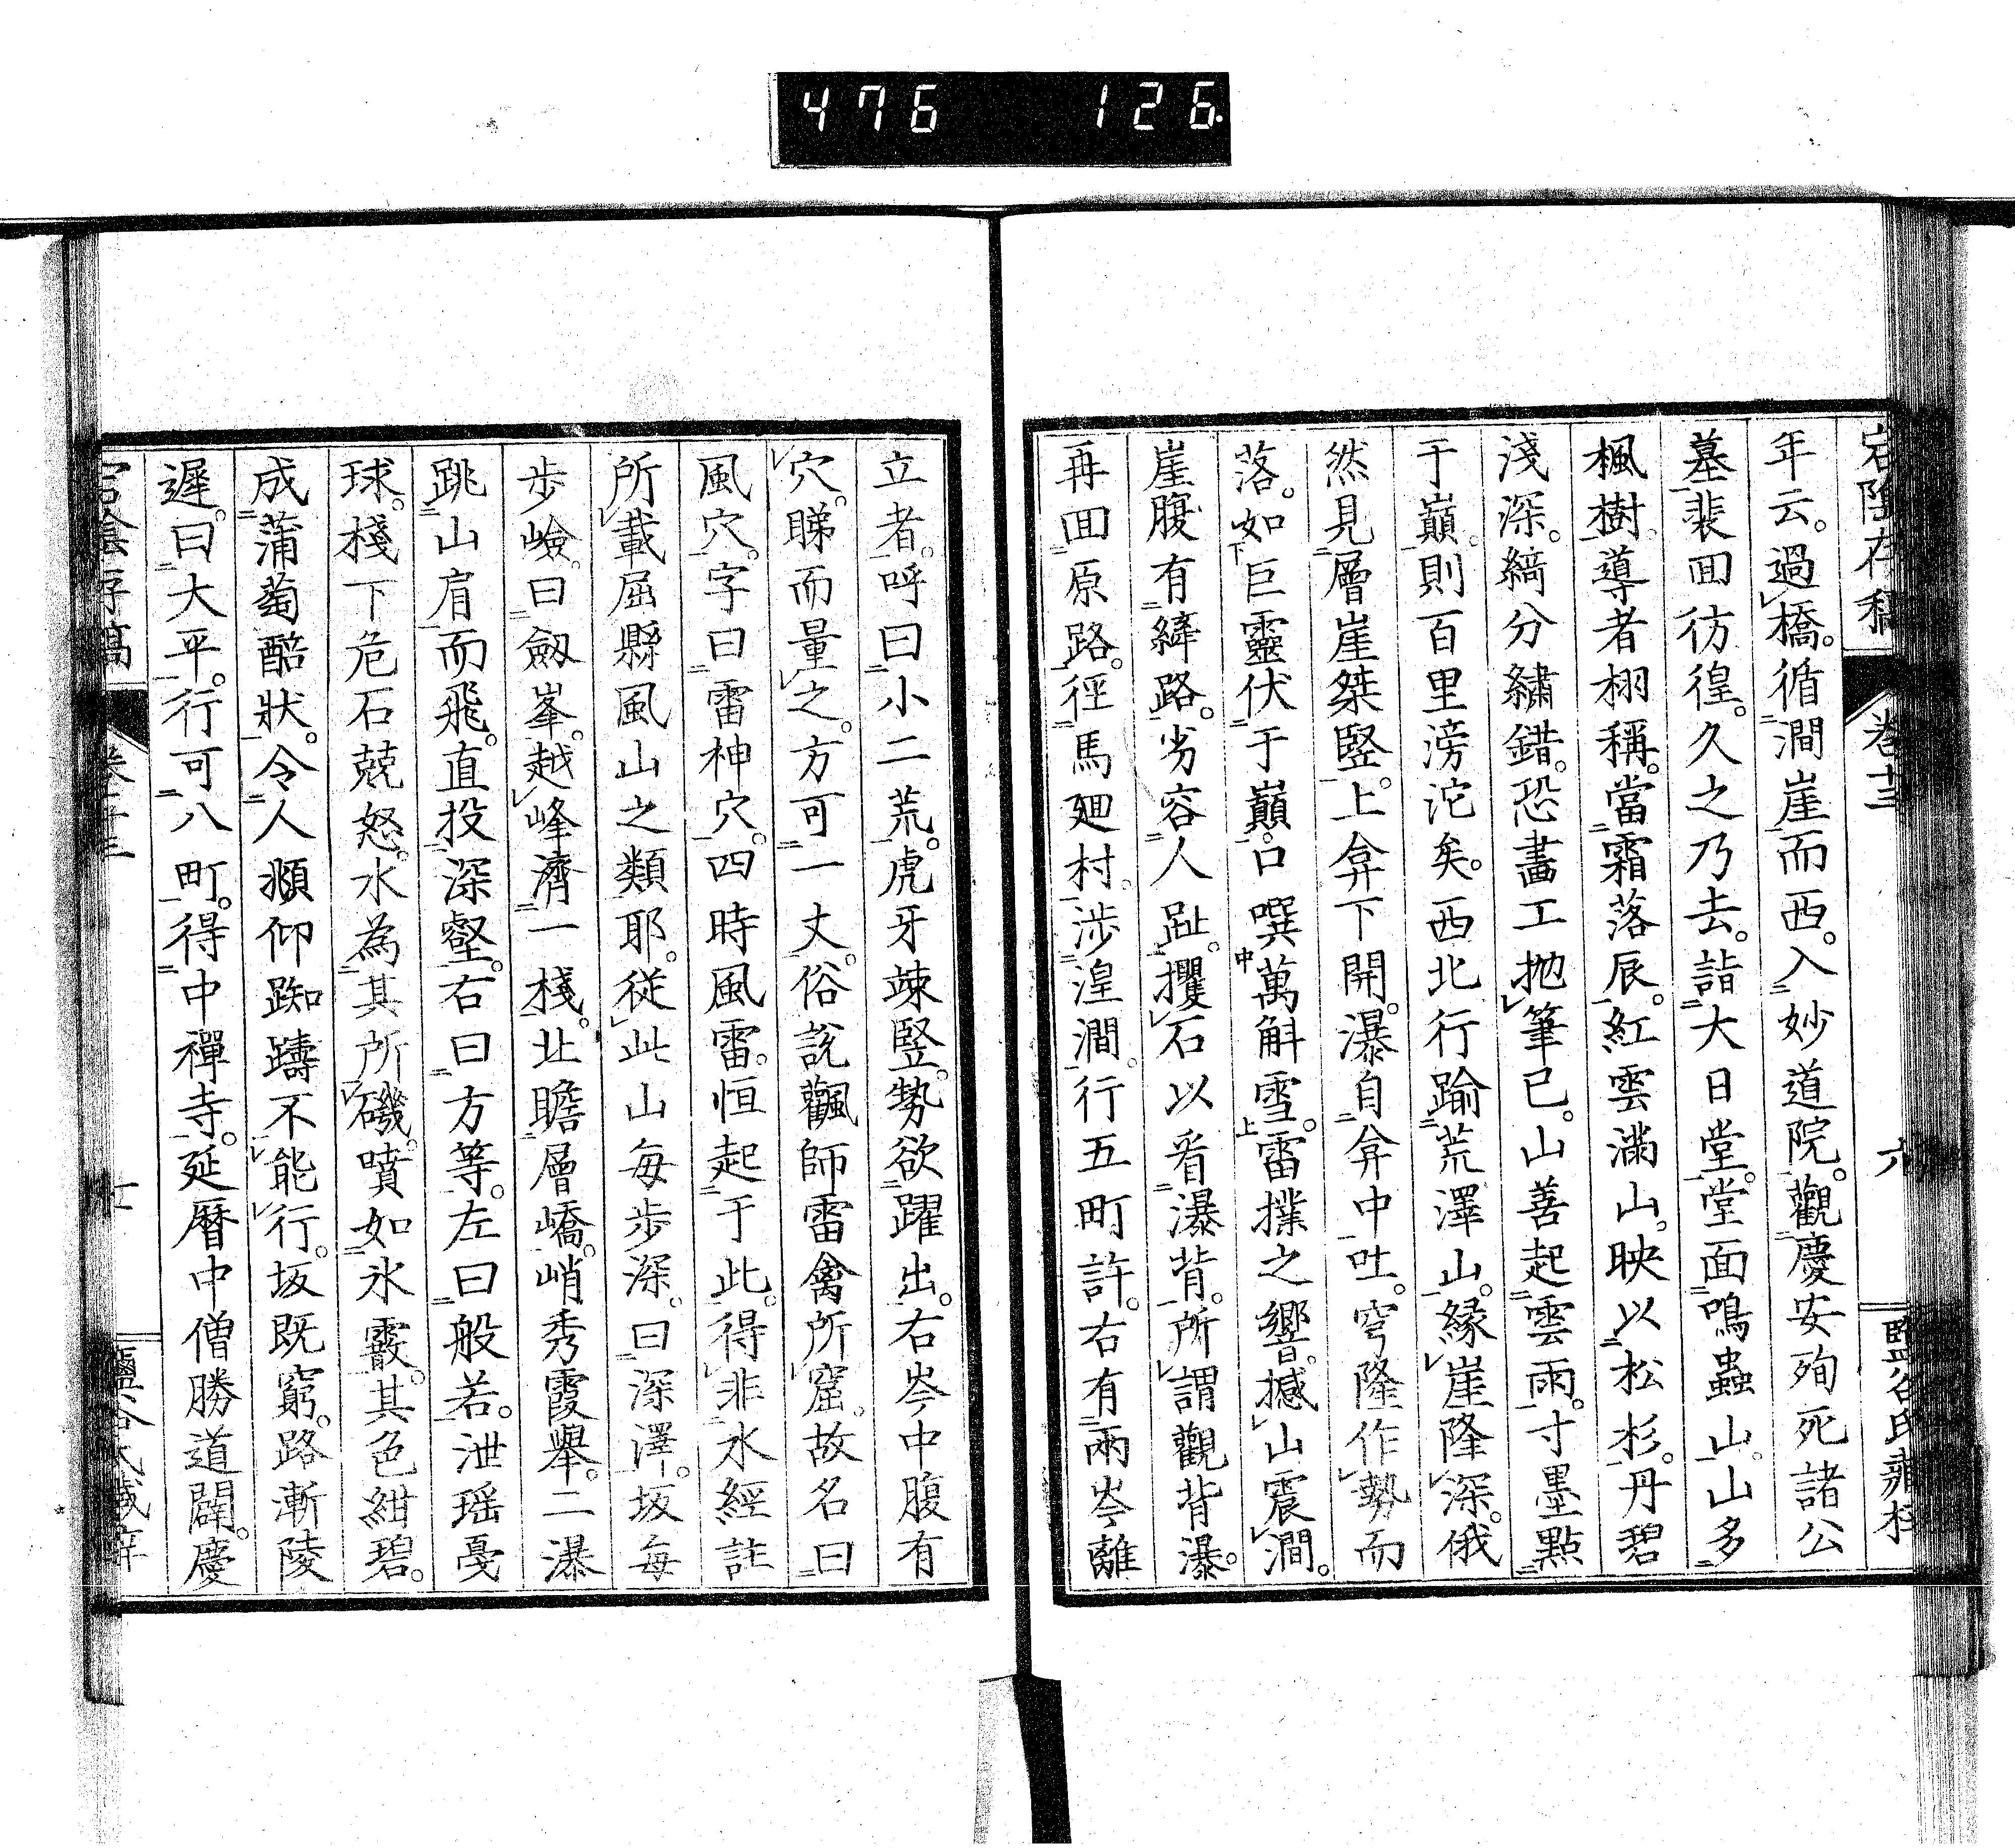 476 126
年云。過橋。循澗崖而西。入妙道院。觀慶安殉死諸公
墓。裴回彷徨。久之乃去。詣大日堂。堂面鳴蟲山。山多
楓樹。導者栩稱。當霜落辰。紅雲滿山。映以松杉。丹碧
淺深。綺分繡錯。恐畫工抛筆已。山善起雲雨。寸墨點
于巔。則百里滂沱矣。西北行踰荒澤山。緣崖隆深。俄
然見層崖桀竪。上弇下開。瀑自弇中吐。穹隆作勢而
落。如巨靈伏于巔。口噀萬斛雪。雷撲之響。撼山震澗。
崖腹有縴路。劣容人趾。攫石以看瀑背。所謂觀背瀑。
再回原路。徑馬廻村。涉湟澗。行五町許。右有兩岑離
立者。呼曰小二荒。虎牙竦竪。勢欲躍出。右岑中腹有
穴。睇而量之。方可一丈。俗說颿師雷禽所窟。故名曰
風穴。字曰雷神穴。四時風雷。恒起于此。得非水經註
所載屈縣風山之類耶。從此山每步深。曰深澤。坂每
步嶮。曰劔峯。越峰濟一棧。北瞻層嶠。峭秀霞舉。二瀑
跳山肩而飛。直投深壑。右曰方等。左曰般若。泄瑤戛
球。棧下危石兢怒。水為其所磯。噴如氷霰。其色紺碧。
成蒲萄醅狀。令人頫仰踟躊不能行。坂既窮。路漸陵
遲。曰大平。行可八町。得中禪寺。延暦中僧勝道闢。慶